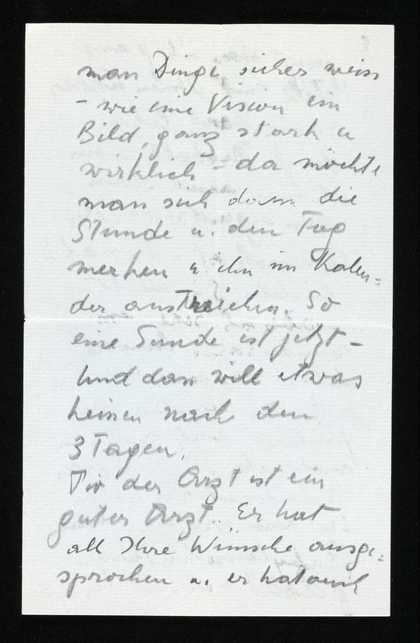 man Dinge sicher weiss
- wie eine Vision ein
Bild, ganz stark u
wirklich - da möchte
man sich dann die
Stunde u. den Tag
merken u. ihn im Kalen=
der anstreichen. So
eine Stunde ist jetzt -
Und das will etwas
heissen nach den
3 Tagen.
der Arzt ist ein
guter Arzt. Er hat
all Ihre Wünsche ausge=
sprochen u. er hat auch